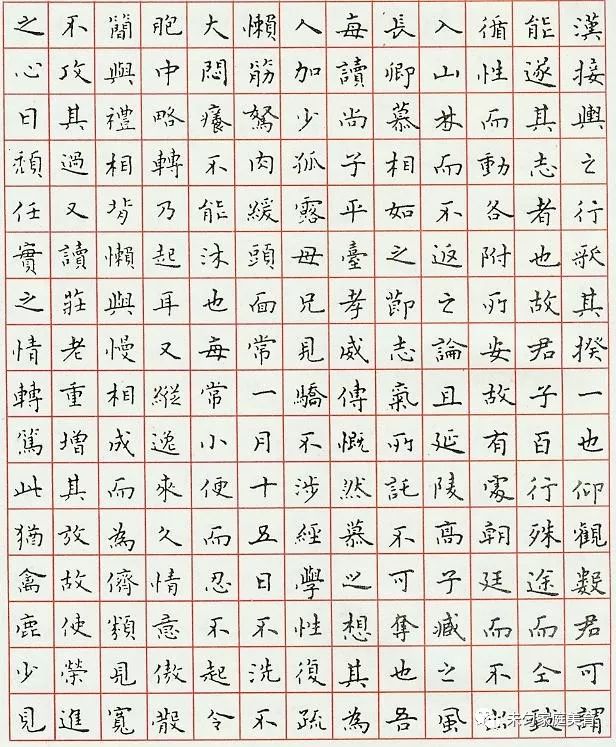 漢接輿之行歌其揆一也仰觀數君可謂
能遂其志者也故君子百行殊途而仝致
循性而動各附所安故有處朝廷而不出
入山林而不返之論且延陵高子臧之風
長卿慕相如之節志氣所託不可奪也吾
每讀尚子平臺孝威傳慨然慕之想其為
人加少孤露母兄見驕不涉經學性復疏
懶筋駑肉緩頭面常一月十五日不洗不
大悶癢不能沐也每常小便而忍不起令
胞中略轉乃起耳又縱逸來久情意傲散
簡與禮相背懶與慢相成而為儕類見寬
不攻其過又讀莊老重增其放故使榮進
之心日頹任實之情轉篤此猶禽鹿少見
未句家庭美育